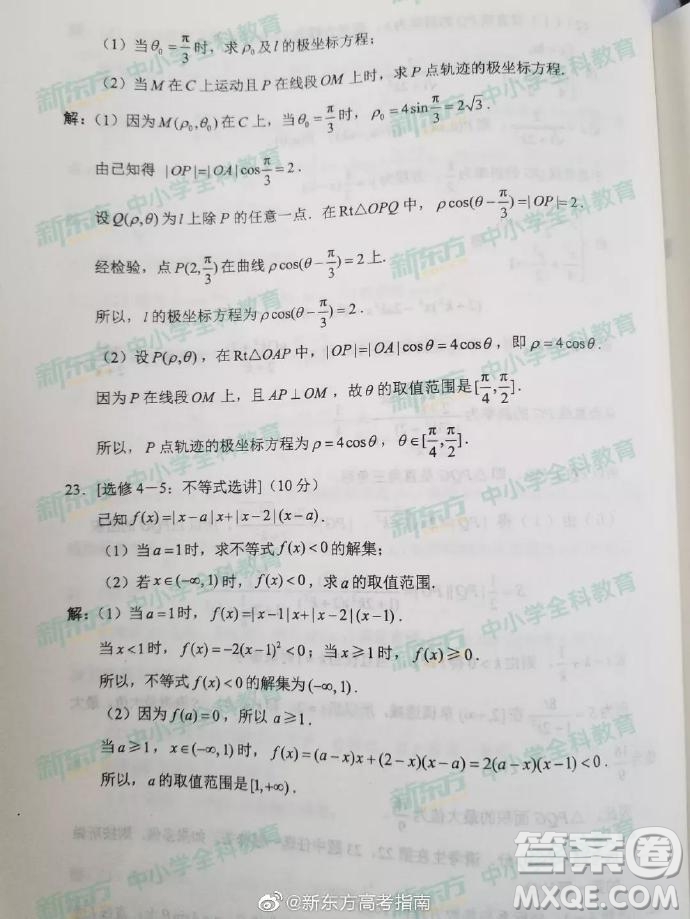 （1）当θ₀=π/3时，求ρ₀及l的极坐标方程；
（2）当M在C上运动且P在线段OM上时，求P点轨迹的极坐标方程.
解：（1）因为M(ρ₀,θ₀)在C上，当θ₀=π/3时，ρ₀=4sinπ/3=2√3.
由已知得 |OP|=|OA|cosπ/3=2.
设Q(ρ,θ)为l上除P的任意一点. 在Rt△OPQ中，ρcos(θ-π/3)=|OP|=2.
经检验，点P(2,π/3)在曲线ρcos(θ-π/3)=2上.
所以，l的极坐标方程为ρcos(θ-π/3)=2.
（2）设P(ρ,θ)，在Rt△OAP中，|OP|=|OA|cosθ=4cosθ，即ρ=4cosθ.
因为P在线段OM上，且AP⊥OM，故θ的取值范围是[π/4,π/2].
所以，P点轨迹的极坐标方程为ρ=4cosθ，θ∈[π/4,π/2].
23．[选修4－5：不等式选讲]（10分）
已知f(x)=|x-a|x+|x-2|(x-a).
（1）当a=1时，求不等式f(x)<0的解集；
（2）若x∈(-∞,1)时，f(x)<0，求a的取值范围.
解：（1）当a=1时，f(x)=|x-1|x+|x-2|(x-1).
当x<1时，f(x)=-2(x-1)²<0；当x≥1时，f(x)≥0.
所以，不等式f(x)<0的解集为(-∞,1).
（2）因为f(a)=0，所以a≥1.
当a≥1，x∈(-∞,1)时，f(x)=(a-x)x+(2-x)(x-a)=2(a-x)(x-1)<0.
所以，a的取值范围是[1,+∞).
新东方 中小学全科教育
答案卷
MXQE.COM
@新东方高考指南